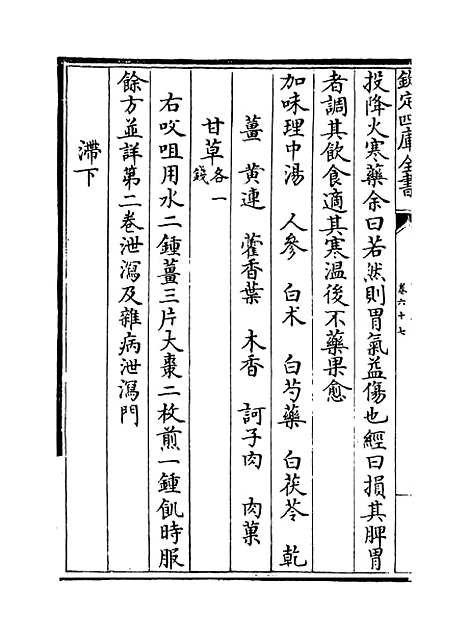 欽定四庫全書
卷六十七
投降火寒藥余曰若然則胃氣益傷也經曰損其脾胃
者調其飲食適其寒温後不藥果愈
加味理中湯　人參　白术　白芍藥　白茯苓　乾
薑　黄連　藿香葉　木香　訶子肉　肉菓
甘草各一錢
右㕮咀用水二鍾薑三片大棗二枚煎一鍾飢時服
餘方並詳第二卷泄瀉及雜病泄瀉門
滯下